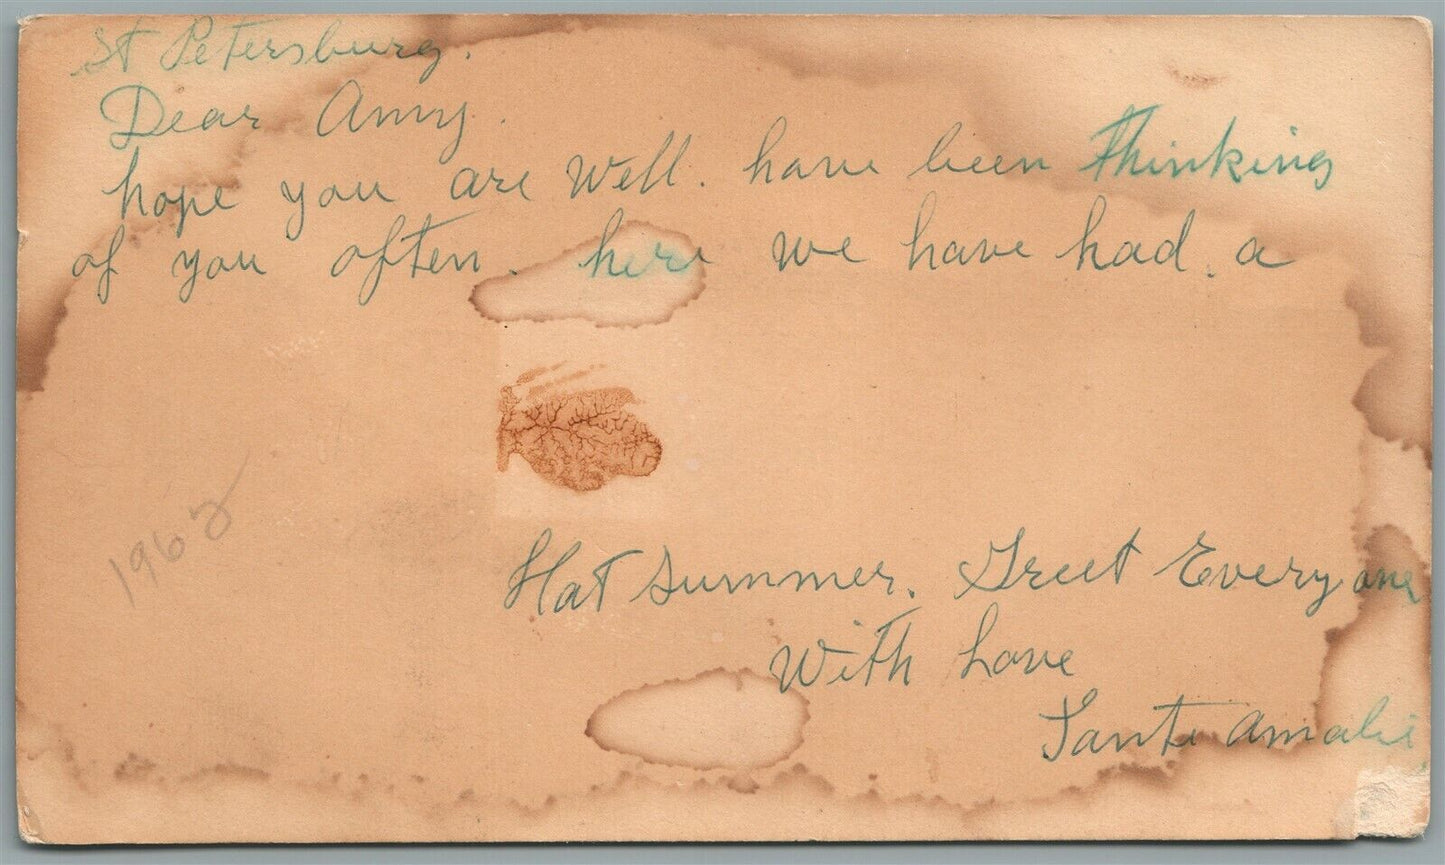 St Petersburg.
Dear Amy.
hope you are well. have been thinking
of you often. here we have had. a
Hat Summer. Greet Everyone
With Love
Tante Amalie
1962